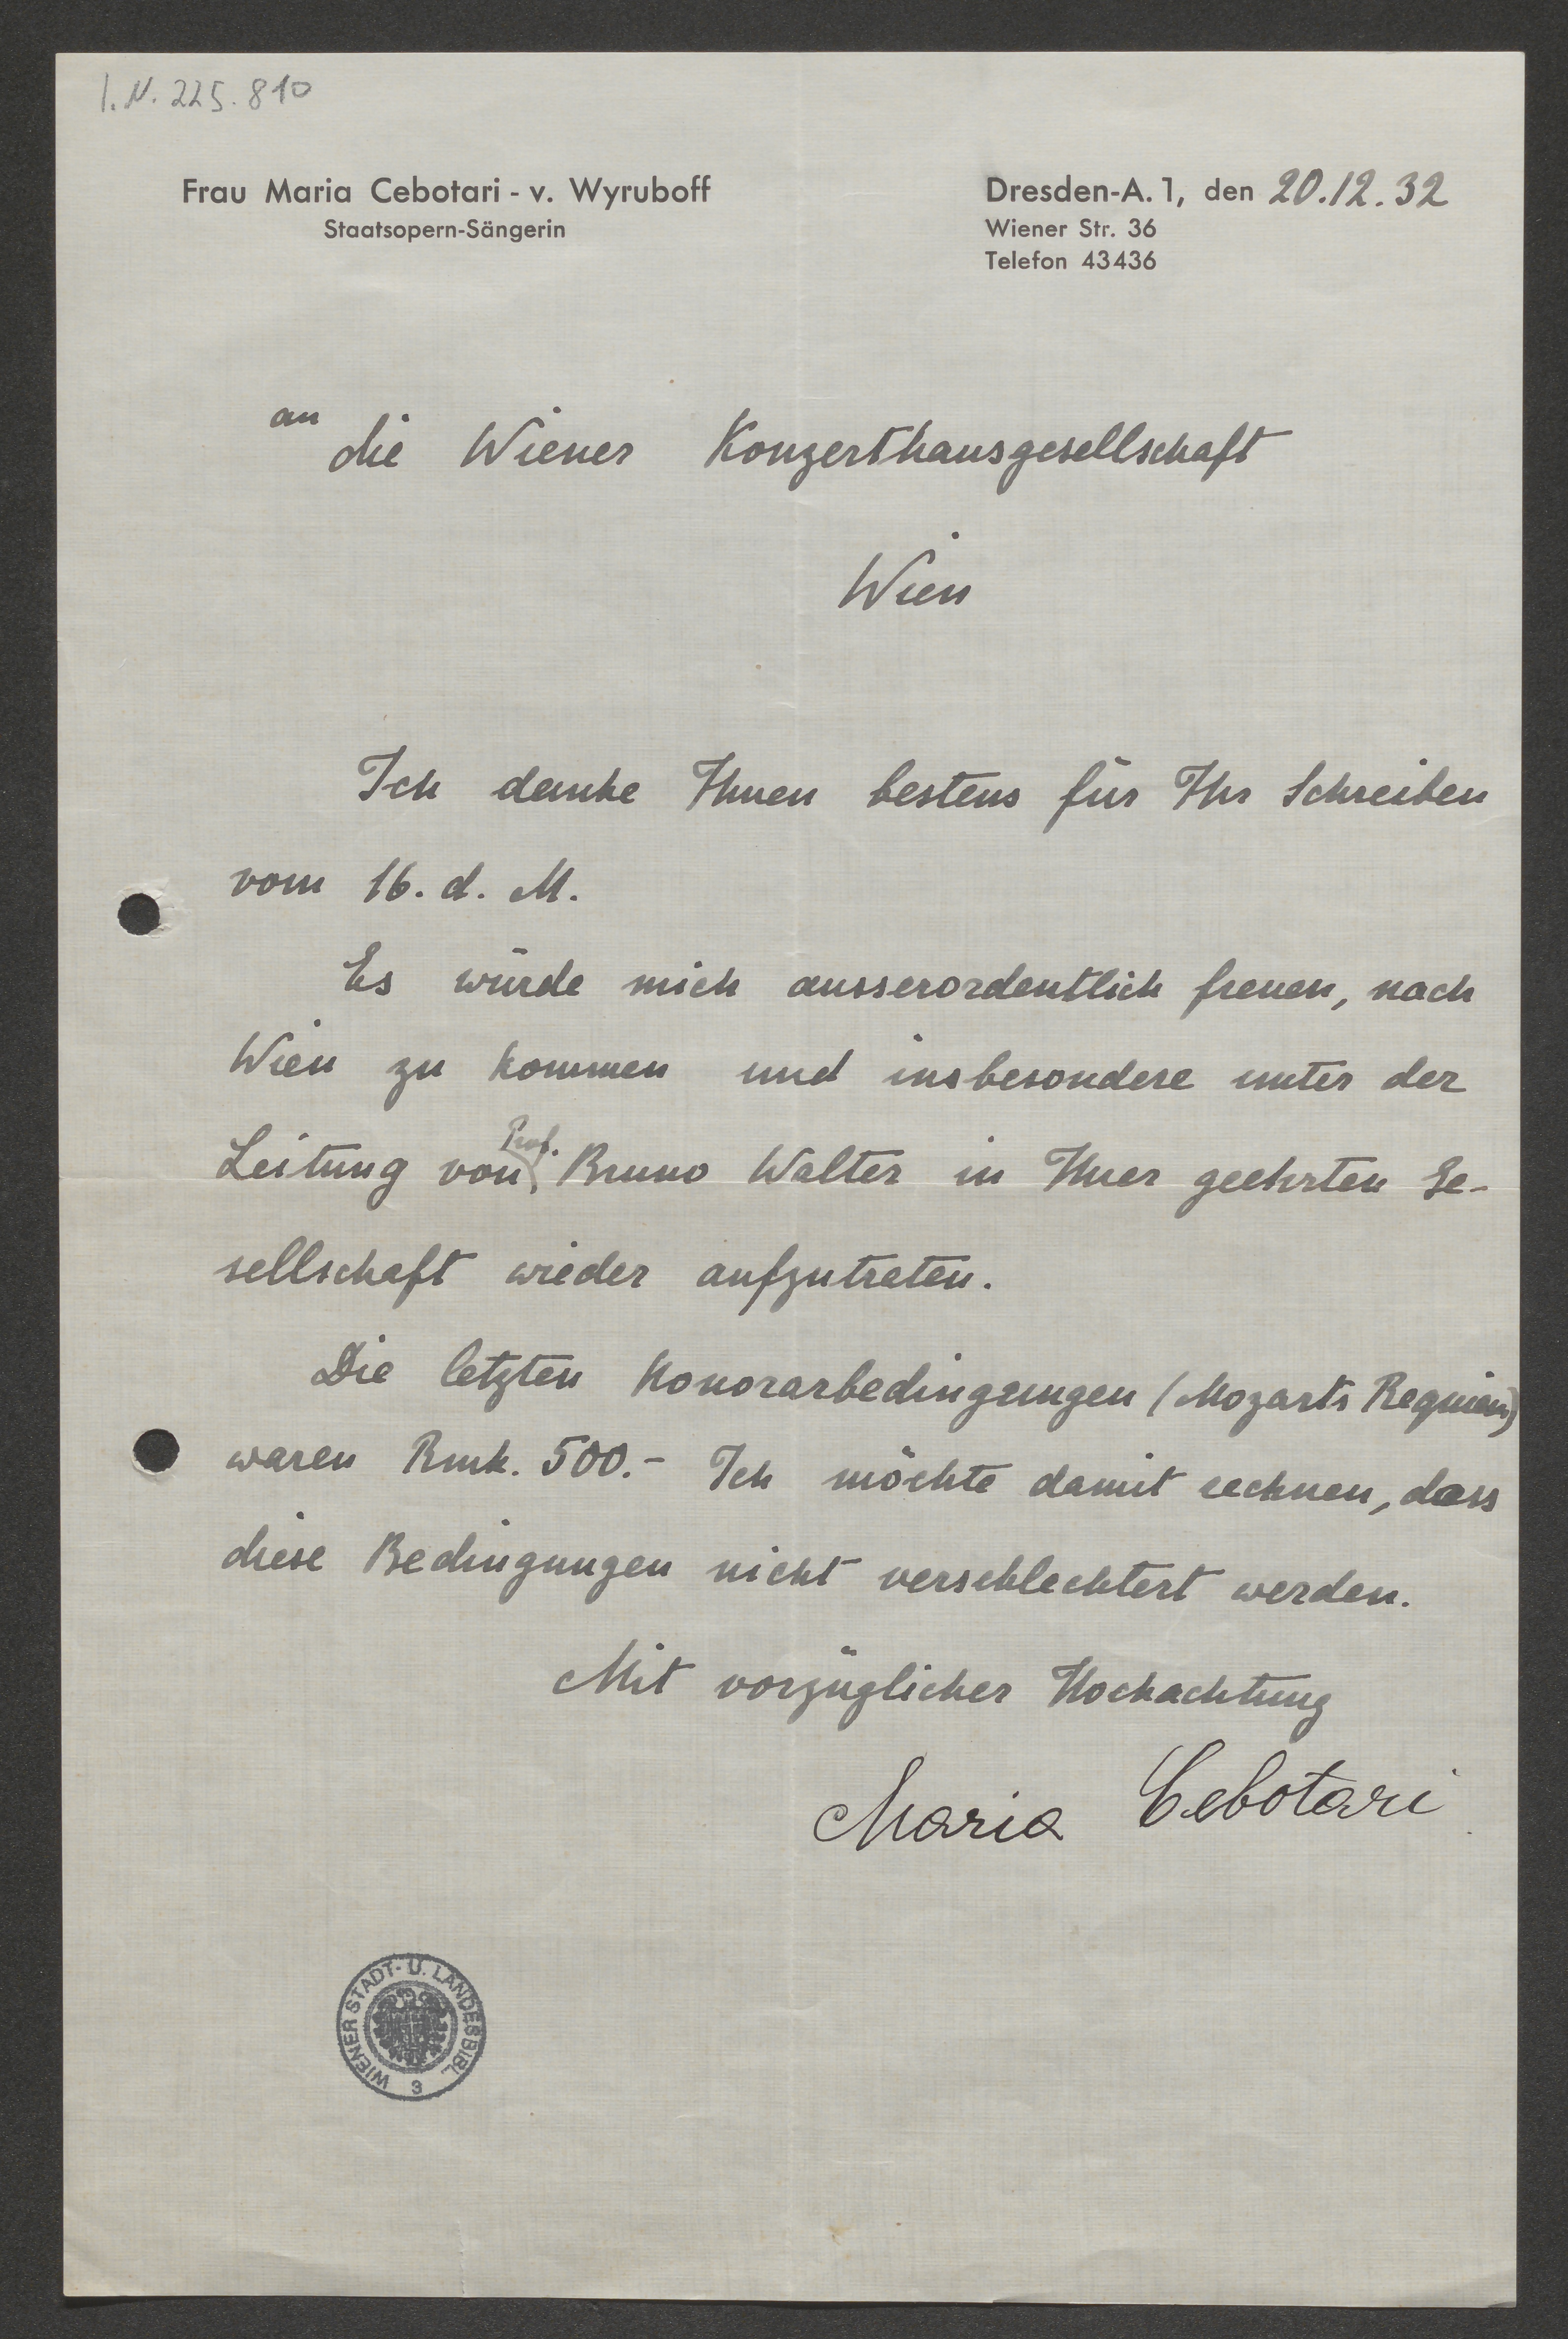 I.N. 225.810
Frau Maria Cebotari - v. Wyruboff
Staatsopern-Sängerin
Dresden-A. 1, den 20.12.32
Wiener Str. 36
Telefon 43436
an
die Wiener Konzerthausgesellschaft
Wien
Ich danke Ihnen bestens für Ihr Schreiben
vom 16. d. M.
Es würde mich ausserordentlich freuen, nach
Wien zu kommen und insbesondere unter der
Leitung von Prof. Bruno Walter in Ihrer geehrten Ge-
sellschaft wieder aufzutreten.
Die letzten Honorarbedingungen (Mozarts Requiem)
waren Rmk. 500.- Ich möchte damit rechnen, dass
diese Bedingungen nicht verschlechtert werden.
Mit vorzüglicher Hochachtung
Maria Cebotari
WIENER STADT- U. LANDESBIBL.
3